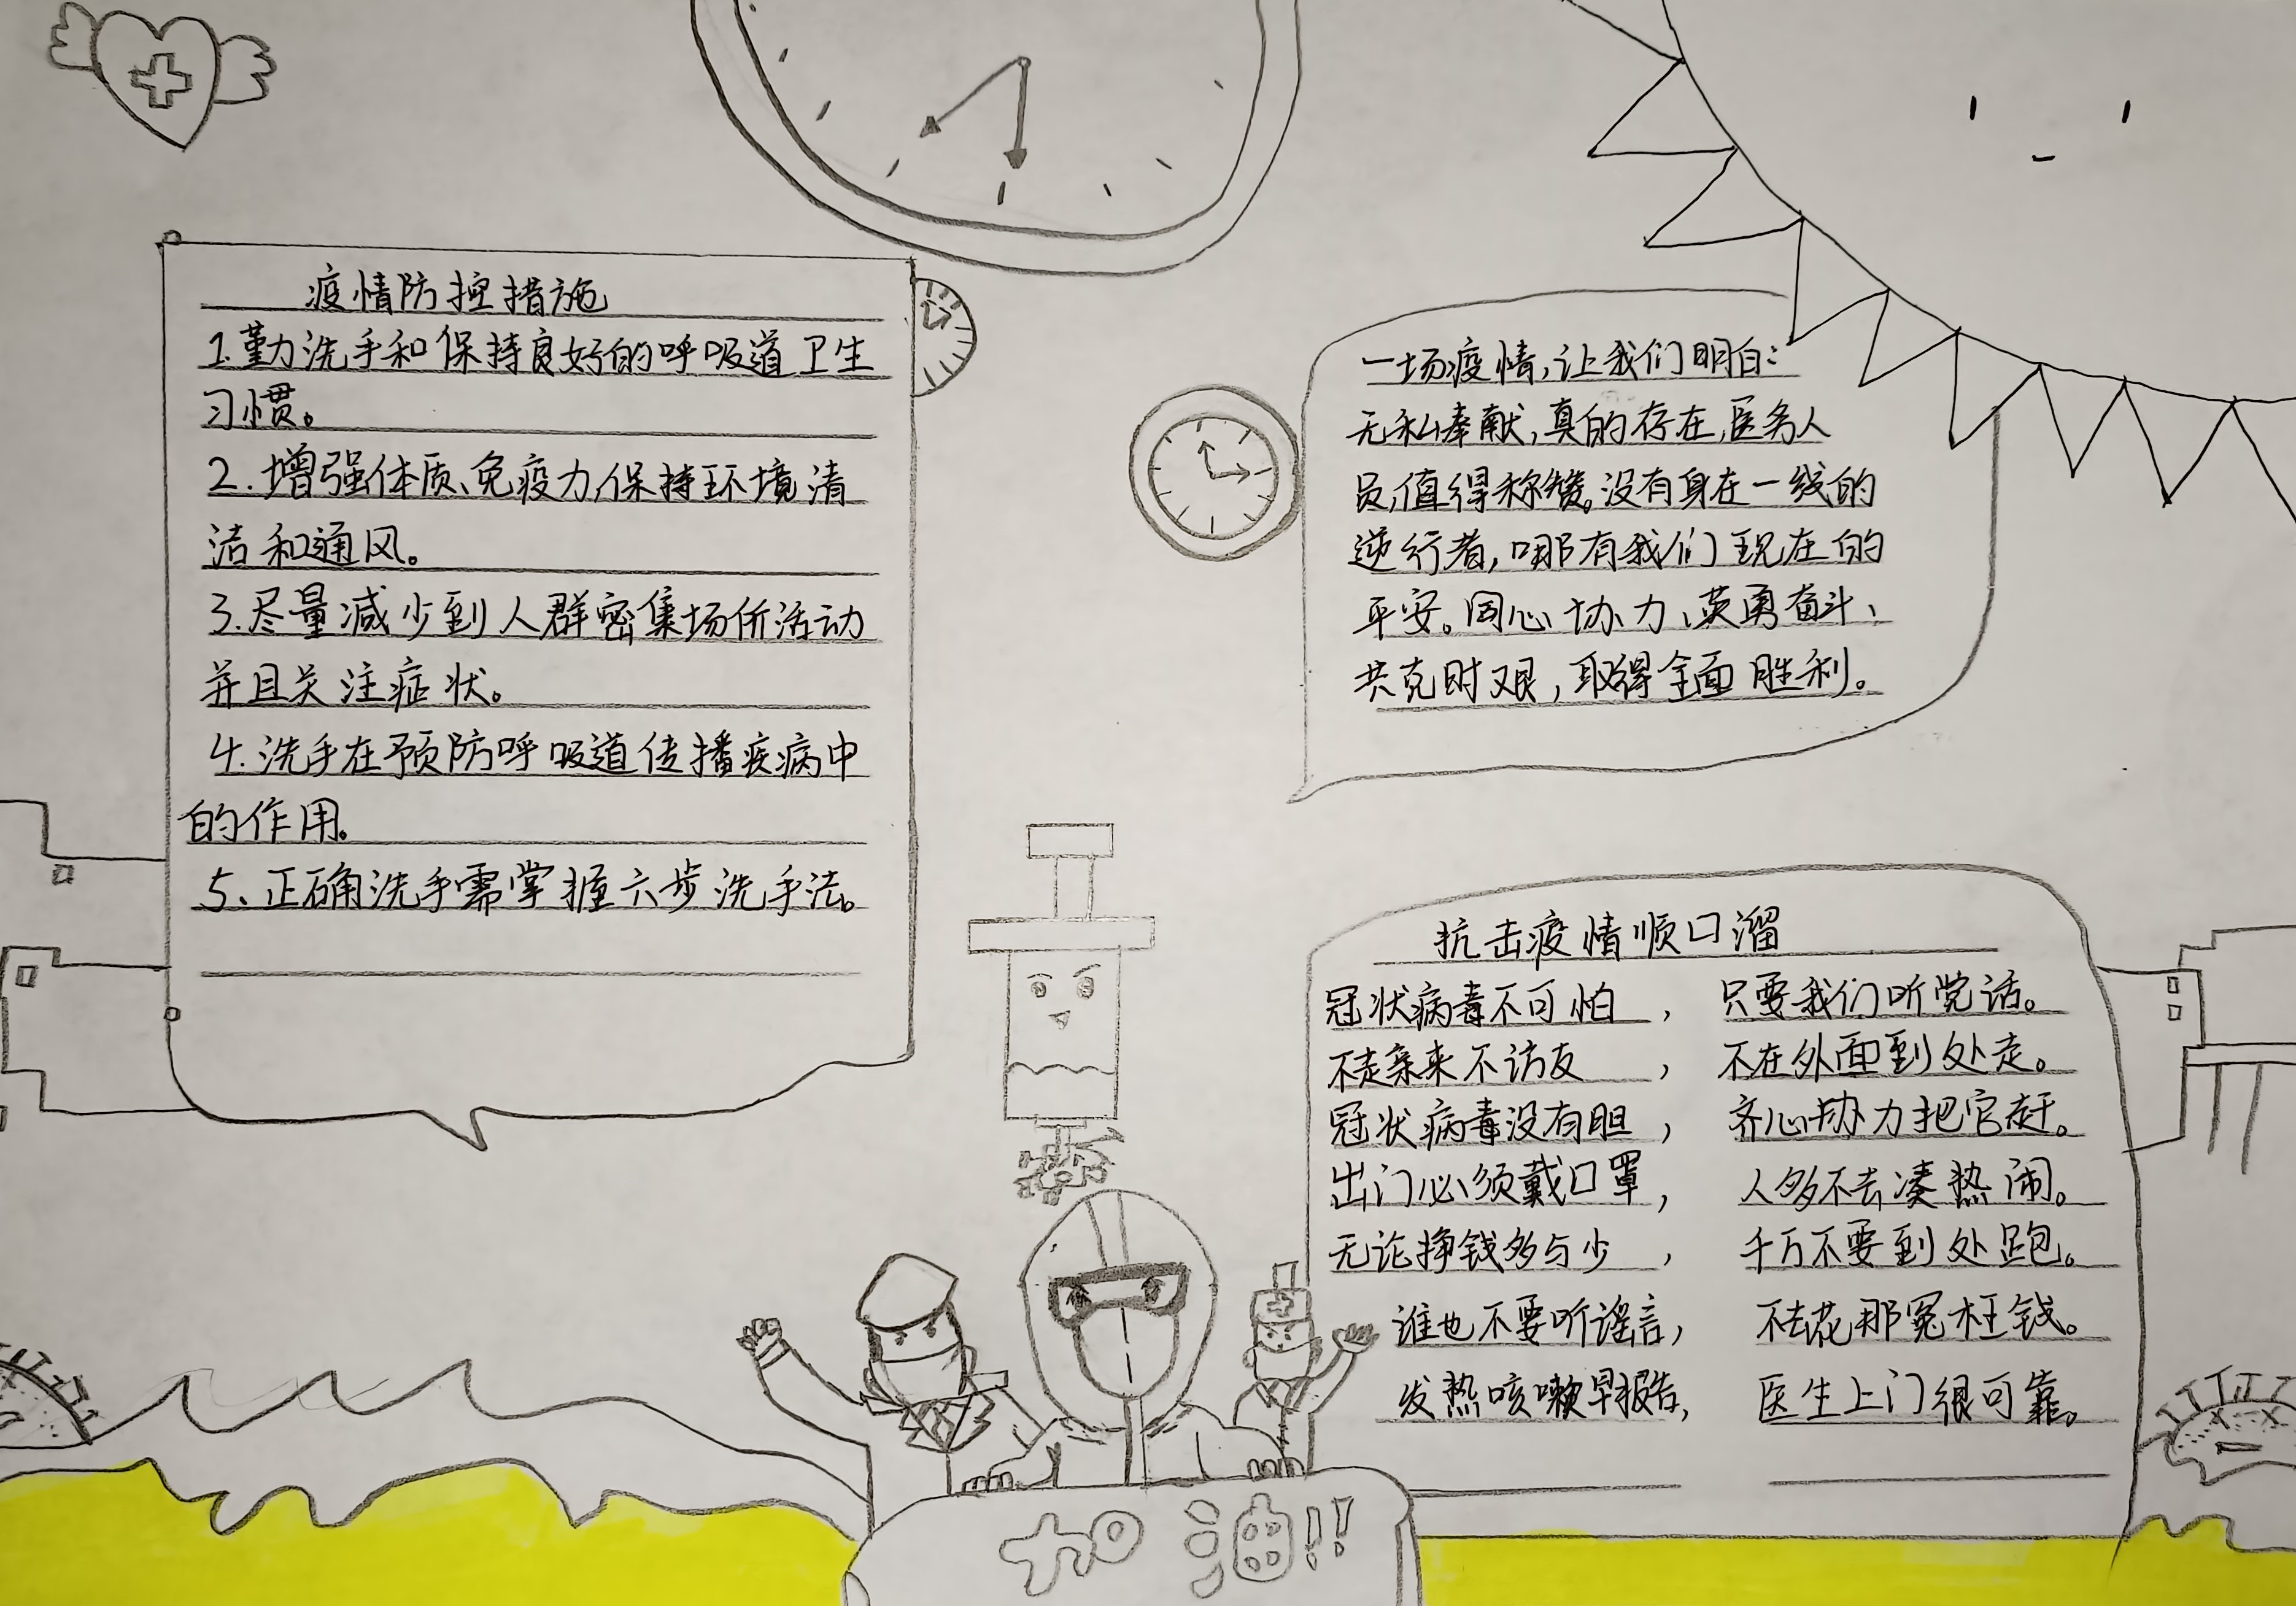 疫情防控措施
1.勤洗手和保持良好的呼吸道卫生
习惯。
2.增强体质、免疫力,保持环境清
洁和通风。
3.尽量减少到人群密集场所活动
并且关注症状。
4.洗手在预防呼吸道传播疾病中
的作用。
5、正确洗手需掌握六步洗手法。
一场疫情,让我们明白:
无私奉献,真的存在,医务人
员,值得称赞。没有身在一线的
逆行者,哪有我们现在的
平安。同心协力、英勇奋斗、
共克时艰,取得全面胜利。
抗击疫情顺口溜
冠状病毒不可怕, 只要我们听党话。
不走亲来不访友, 不在外面到处走。
冠状病毒没有胆, 齐心协力把它赶。
出门必须戴口罩, 人多不去凑热闹。
无论挣钱多与少, 千万不要到处跑。
谁也不要听谣言, 不去花那冤枉钱。
发热咳嗽早报告, 医生上门很可靠。
加油!!